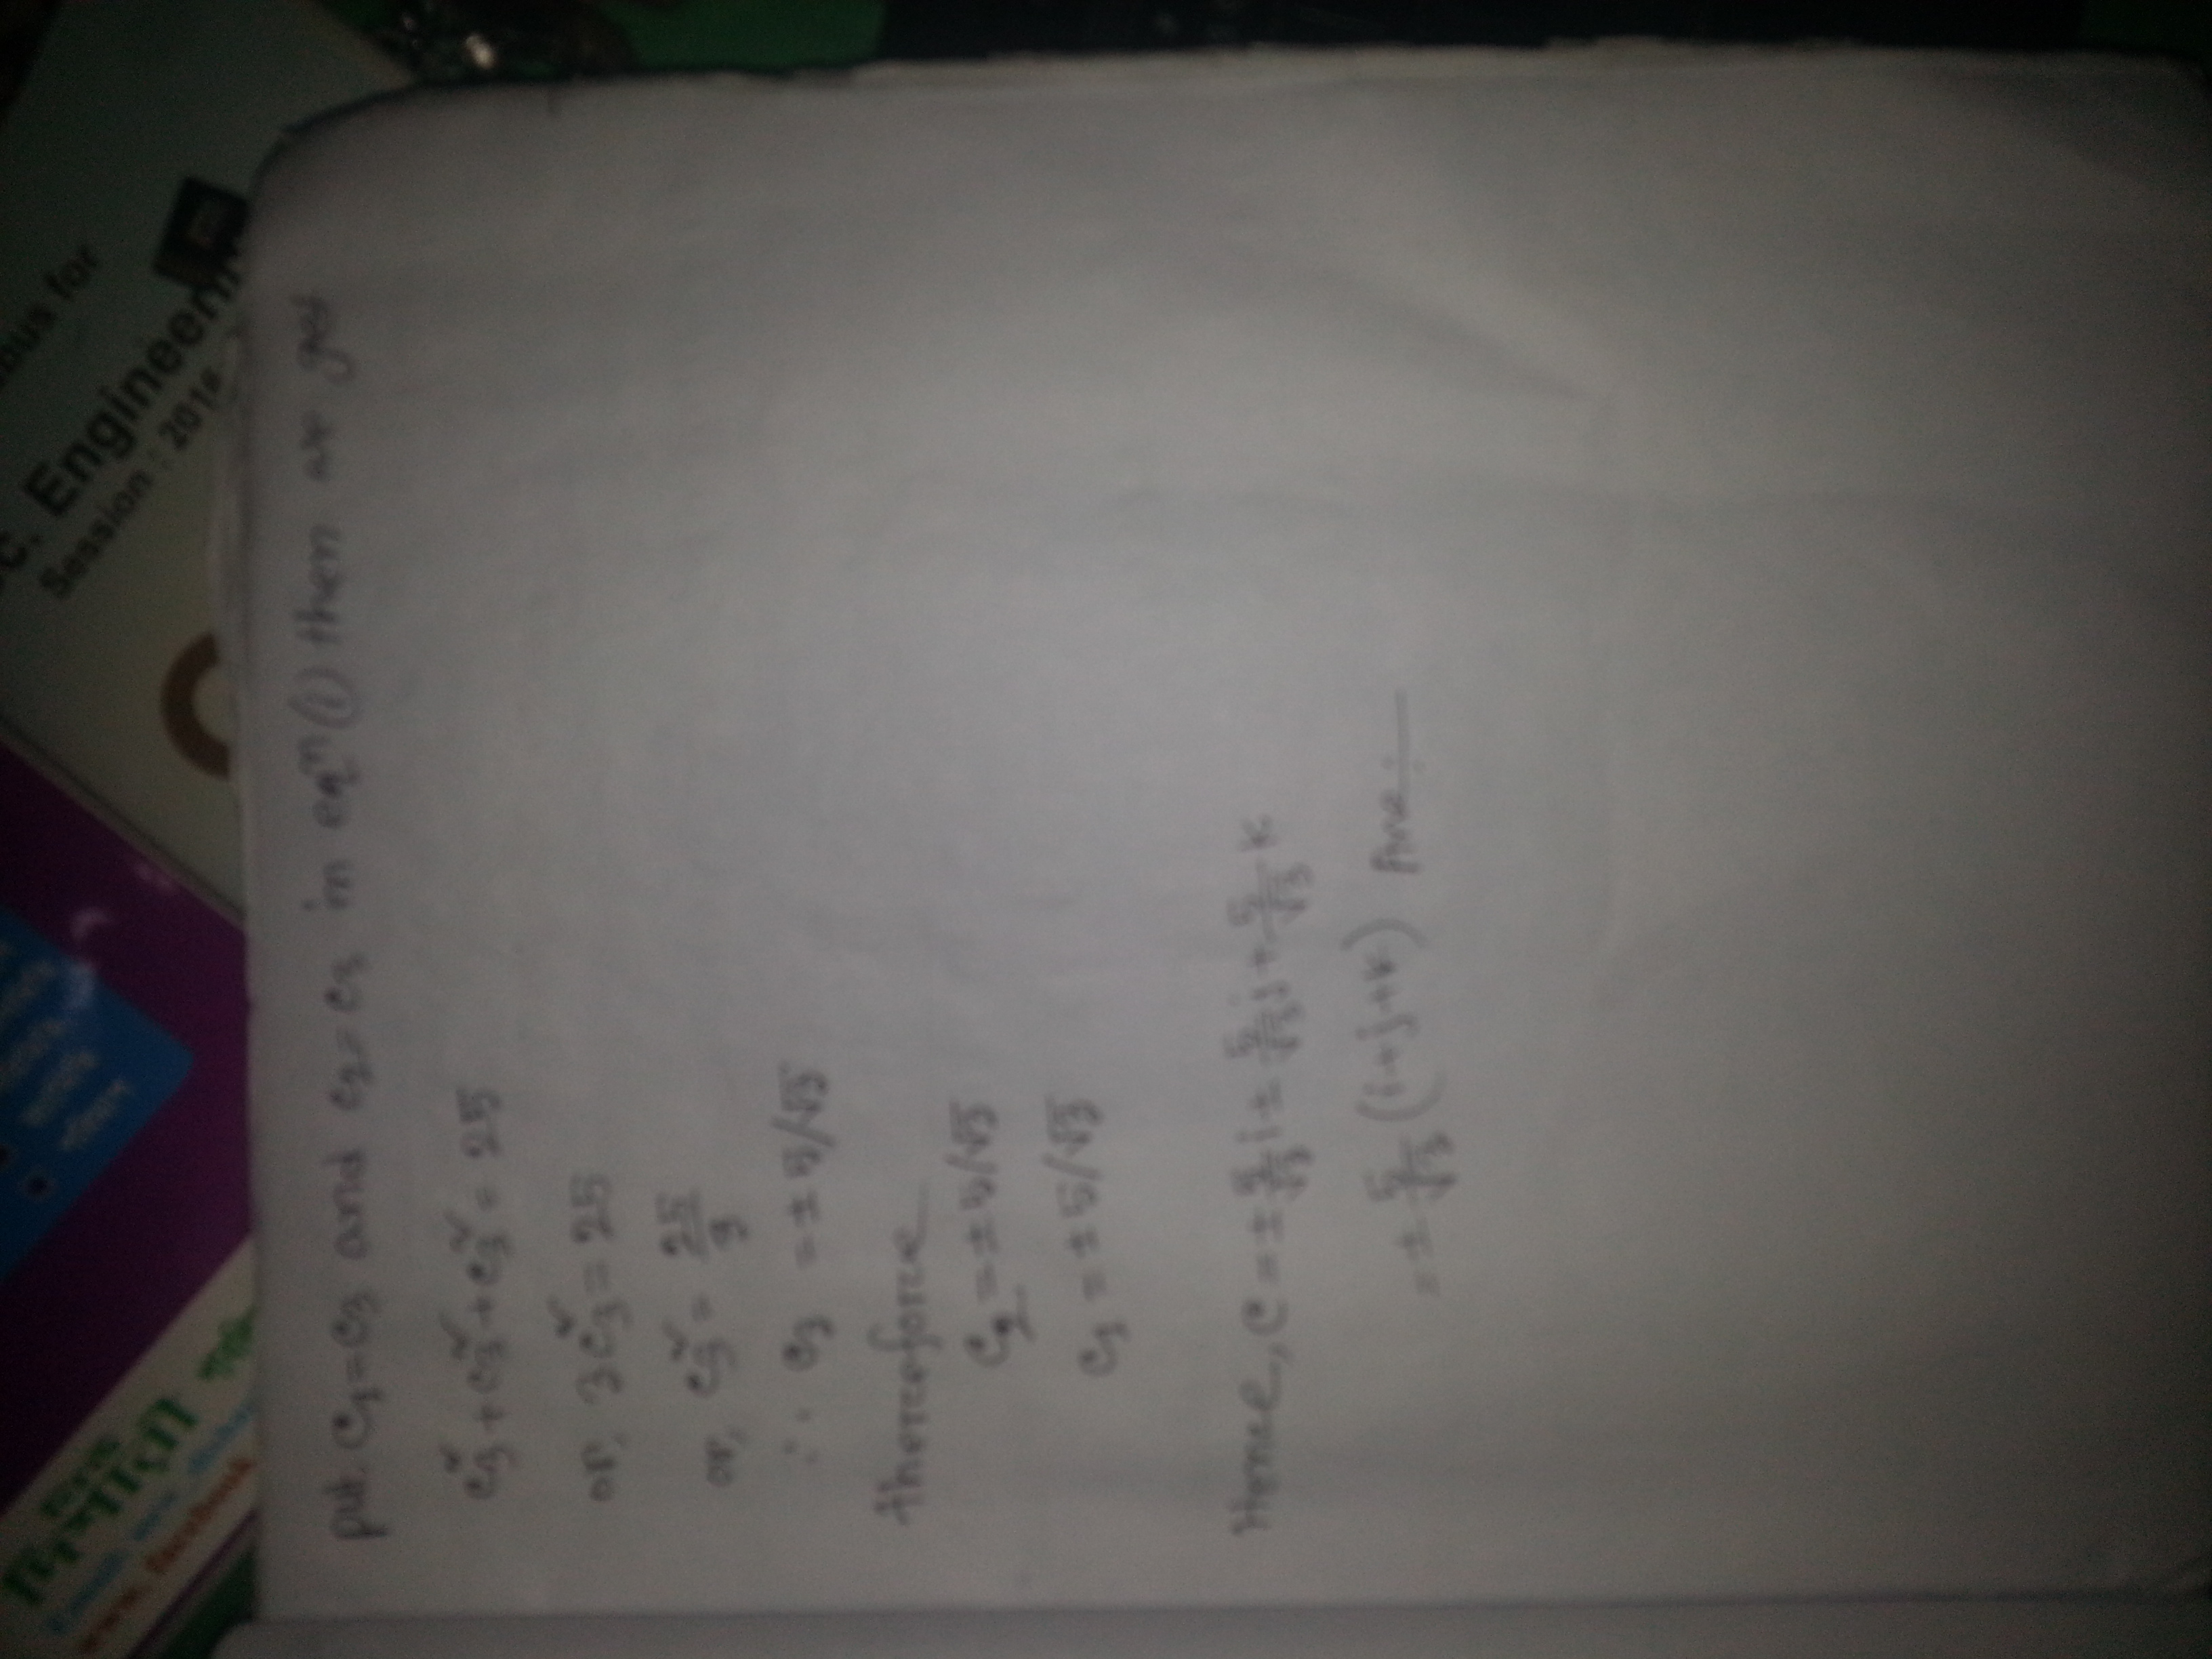 bus for
C. Engineerin
Session : 2016-
www. facebook
put. c₁=c₃ and c₂=c₃ in eqⁿ(i) then we get
c₃²+c₃²+c₃² = 25
or, 3c₃² = 25
or, c₃² = 25/3
∴ c₃ = ±5/√3
therefore
c₂ = ±5/√3
c₁ = ±5/√3
Hence, c = ± 5/√3 i ± 5/√3 j + 5/√3 k
= ± 5/√3 (i+j+k) Ans: